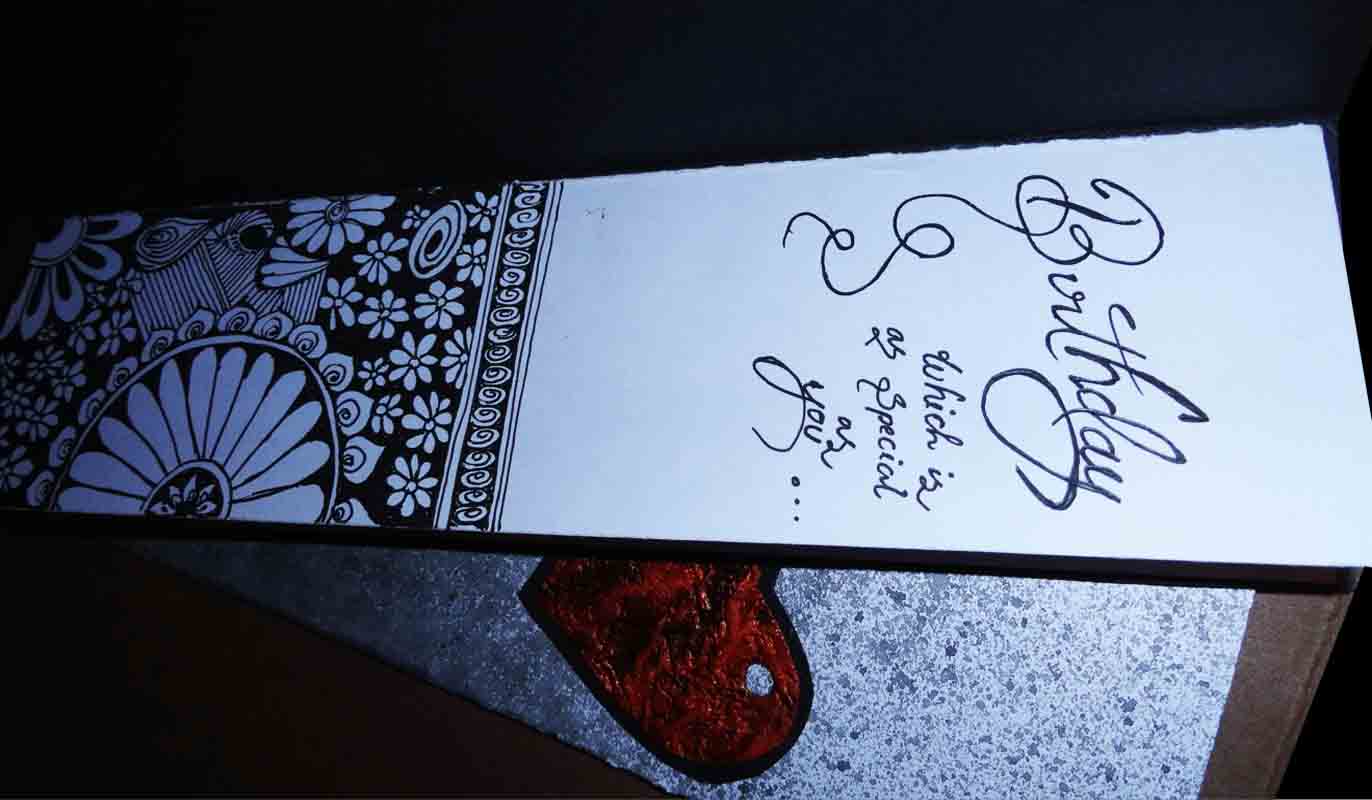 Birthday
Which is
as Special
as
you ...